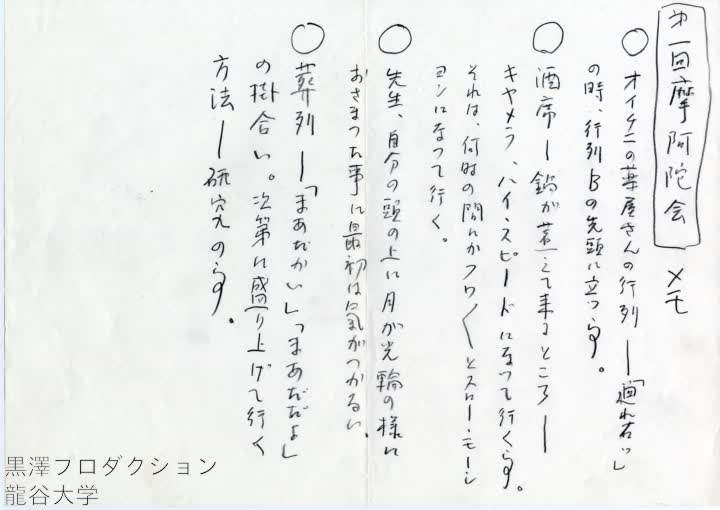 第一回摩阿陀会 メモ
○ オイチニの薬屋さんの行列 ―「廻れ右ッ」
の時、行列Bの先頭に立つ事。
○ 酒席 ― 鍋が煮えて来るところ ―
キャメラ、ハイ・スピードになって行く事。
それは、何時の間にかフワ〱とスロー・モーシ
ョンになって行く。
○ 先生、自分の頭の上に月が光輪の様に
おさまった事に最初は気がつかない。
○ 葬列 ―「まあだかい」「まあだだよ」
の掛合い。次第に盛り上げて行く
方法 ― 研究の事。
黒澤プロダクション
龍谷大学